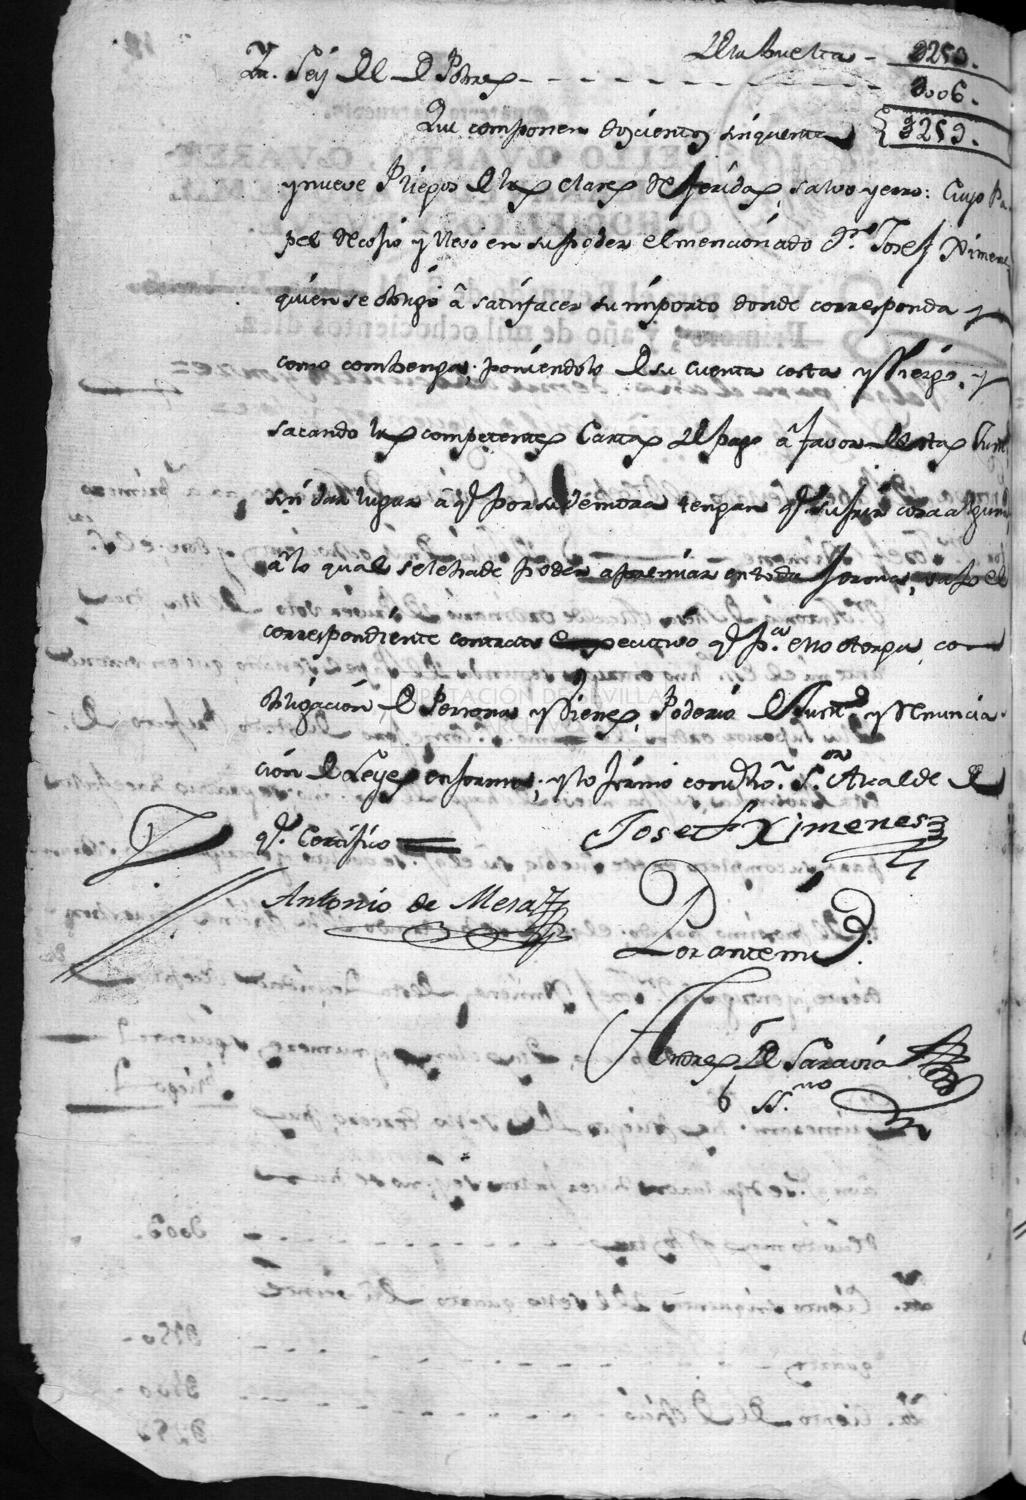 De la buelta - 0253.
Yt. Seis del de Pobres - - - - - - - - 0006.
Que componen doscientos sinquenta } 0259.
y nueve Pliegos de las clases referidas, salvo yerro: Cuyo Pa-
pel recojio y llevó en su poder el mencionado Dn. Josef Ximenes
quien se obligó â satisfacer su importe donde corresponda y
como combenga; poniendolo de su cuenta costa y Riergo, y
sacando las competentes Cartas de pago â favor de estas
sin dar lugar â q. por su demora tengan q. sufrir cosa alguna
a lo qual se le ha de poder apremiar en toda forma,
correspondiente contrato executivo q. pa. ello otorga, con
obligacion de Persona y Bienes, Poderio de Justas. y Renuncia-
cion de Leyes en forma; y lo firmó con dho. Sor. Alcalde de
q. Certifico
Josef Ximenes
Antonio de Mesa
Por ante mi
Andres de Saravia
SS.no
DIPUTACIÓN DE SEVILLA